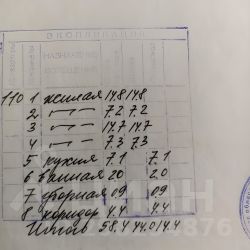 ЭКСПЛИКАЦИЯ
НАЗНАЧЕНИЕ
110 1 жилая 14.8 14.8
2 —"— 7.2 7.2
3 —"— 14.7 14.7
4 —"— 7.3 7.3
5 кухня 7.1 7.1
6 ванная 2.0 2.0
7 уборная 0.9 0.9
8 коридор 4.4 4.4
Итого 58.4 44.0 14.4